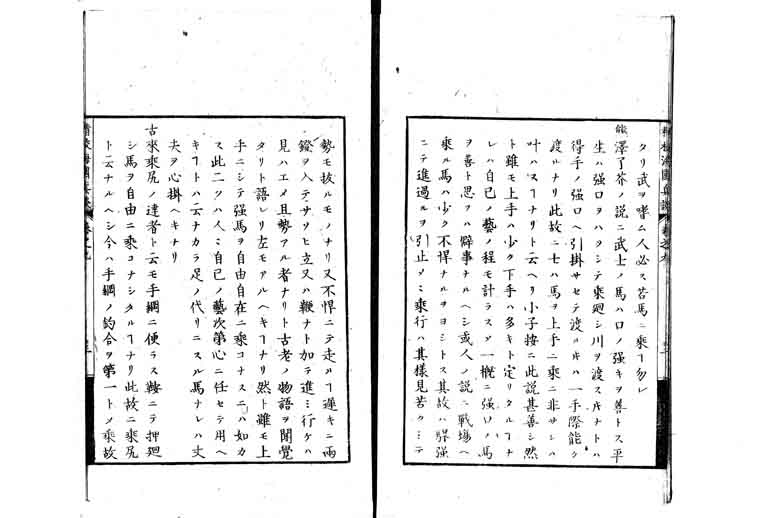 タリ武ヲ嗜ム人必ス若馬ニ乗ヿ勿レ
熊澤了芥ノ説ニ武士ノ馬ハ口ノ強キヲ善トス平
生ハ強口ヲハヲシテ乗廻シ川ヲ渡スキナトハ
得手ノ強口ヘ引掛サセテ渡ルキハ一手際能ク
渡ルナリ此故ニ士ハ馬ヲ上手ニ乗ニ非サレハ
叶ハヌヿナリト云ヘリ小子按ニ此説甚善シ然
ト雖モ上手ハ少ク下手ハ多キト定リタルヿナ
レハ自己ノ藝ノ程モ計ラスシテ一概ニ強口ノ馬
ヲ善ト思フハ僻事ナルヘシ或人ノ説ニ戰場ヘ
乗ル馬ハ少ク不悍ナルヲヨシトス其故ハ驛強
ニテ進過ルヲ引止メヽ乗行ハ其樣見苦クシテ
勢モ拔ルモノナリ又不悍ニテ走ルヿ遲キニ兩
鐙ヲ入テサソヒ立又ハ鞭ナト加テ進ミ行ケハ
見ハエメ且勢アル者ナリト古老ノ物語ヲ聞覺
タリト語レリ左モアルヘキヿナリ然ト雖モ上
手ニシテ強馬ヲ自由自在ニ乗コナスニハ如カ
ス此二ツハ人ヽ自己ノ藝次第心ニ任セテ用ヘ
キヿトハ云ナカラ足ノ代リニスル馬ナレハ丈
夫ヲ心掛ヘキナリ
古來乗尻ノ達者ト云モ手綱ニ便ラス鞍ニテ押廻
シ馬ヲ自由ニ乗コナシタルヿナリ此故ニ乗尻
ト云ナルヘシ今ハ手綱ノ釣合ヲ第一トメ乗故